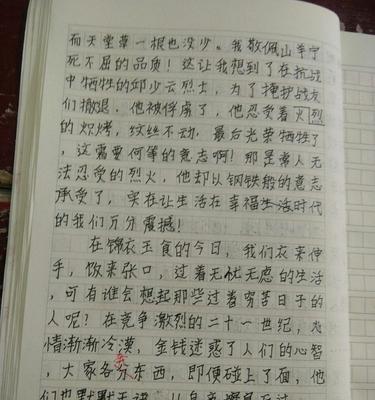 而天堂草一根也没少。我敬佩山羊宁
死不屈的品质！这让我想到了在抗战
中牺牲的邱少云烈士，为了掩护战友
们撤退，他被俘虏了，他忍受着火烈
的炽烤，纹丝不动，最后光荣牺牲了
，这需要何等的意志啊！那是常人无
法忍受的烈火，他却以钢铁般的意志
承受了，实在让生活在幸福生活时代
的我们万分震撼！
在锦衣玉食的今日，我们衣来伸
手，饭来张口，过着无忧无虑的生活
，可有谁会想起那些过着穷苦日子的
人呢？在竞争激烈的二十一世纪，心
情渐渐冷漠，金钱迷惑了人们的心智
，大家各分东西，即便碰上了面，他
们也默默无语